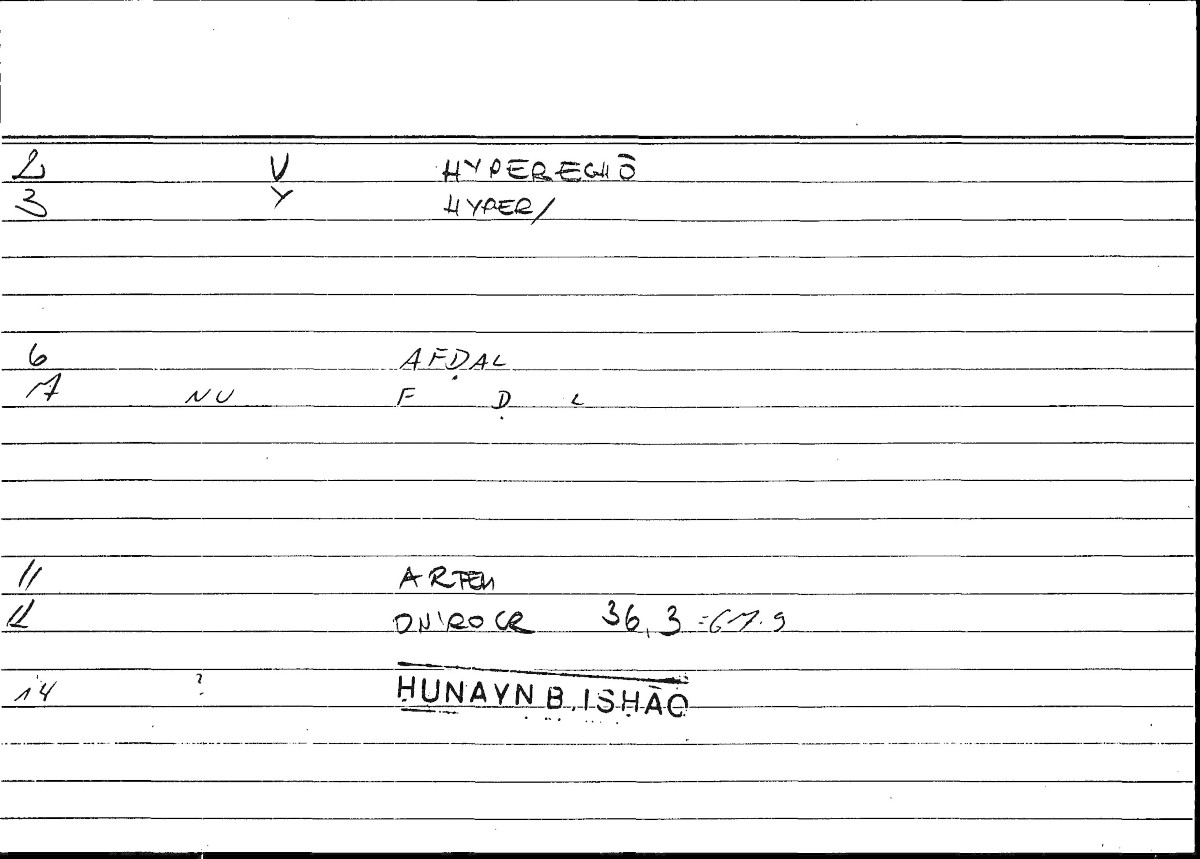 2 V HYPERECHŌ
3 Y HYPER/
6 AFḌAL
7 NU F Ḍ L
11 ARTEM
12 ONIROCR 36,3 = 67.9
14 ? ḤUNAYN B. ISḤĀQ